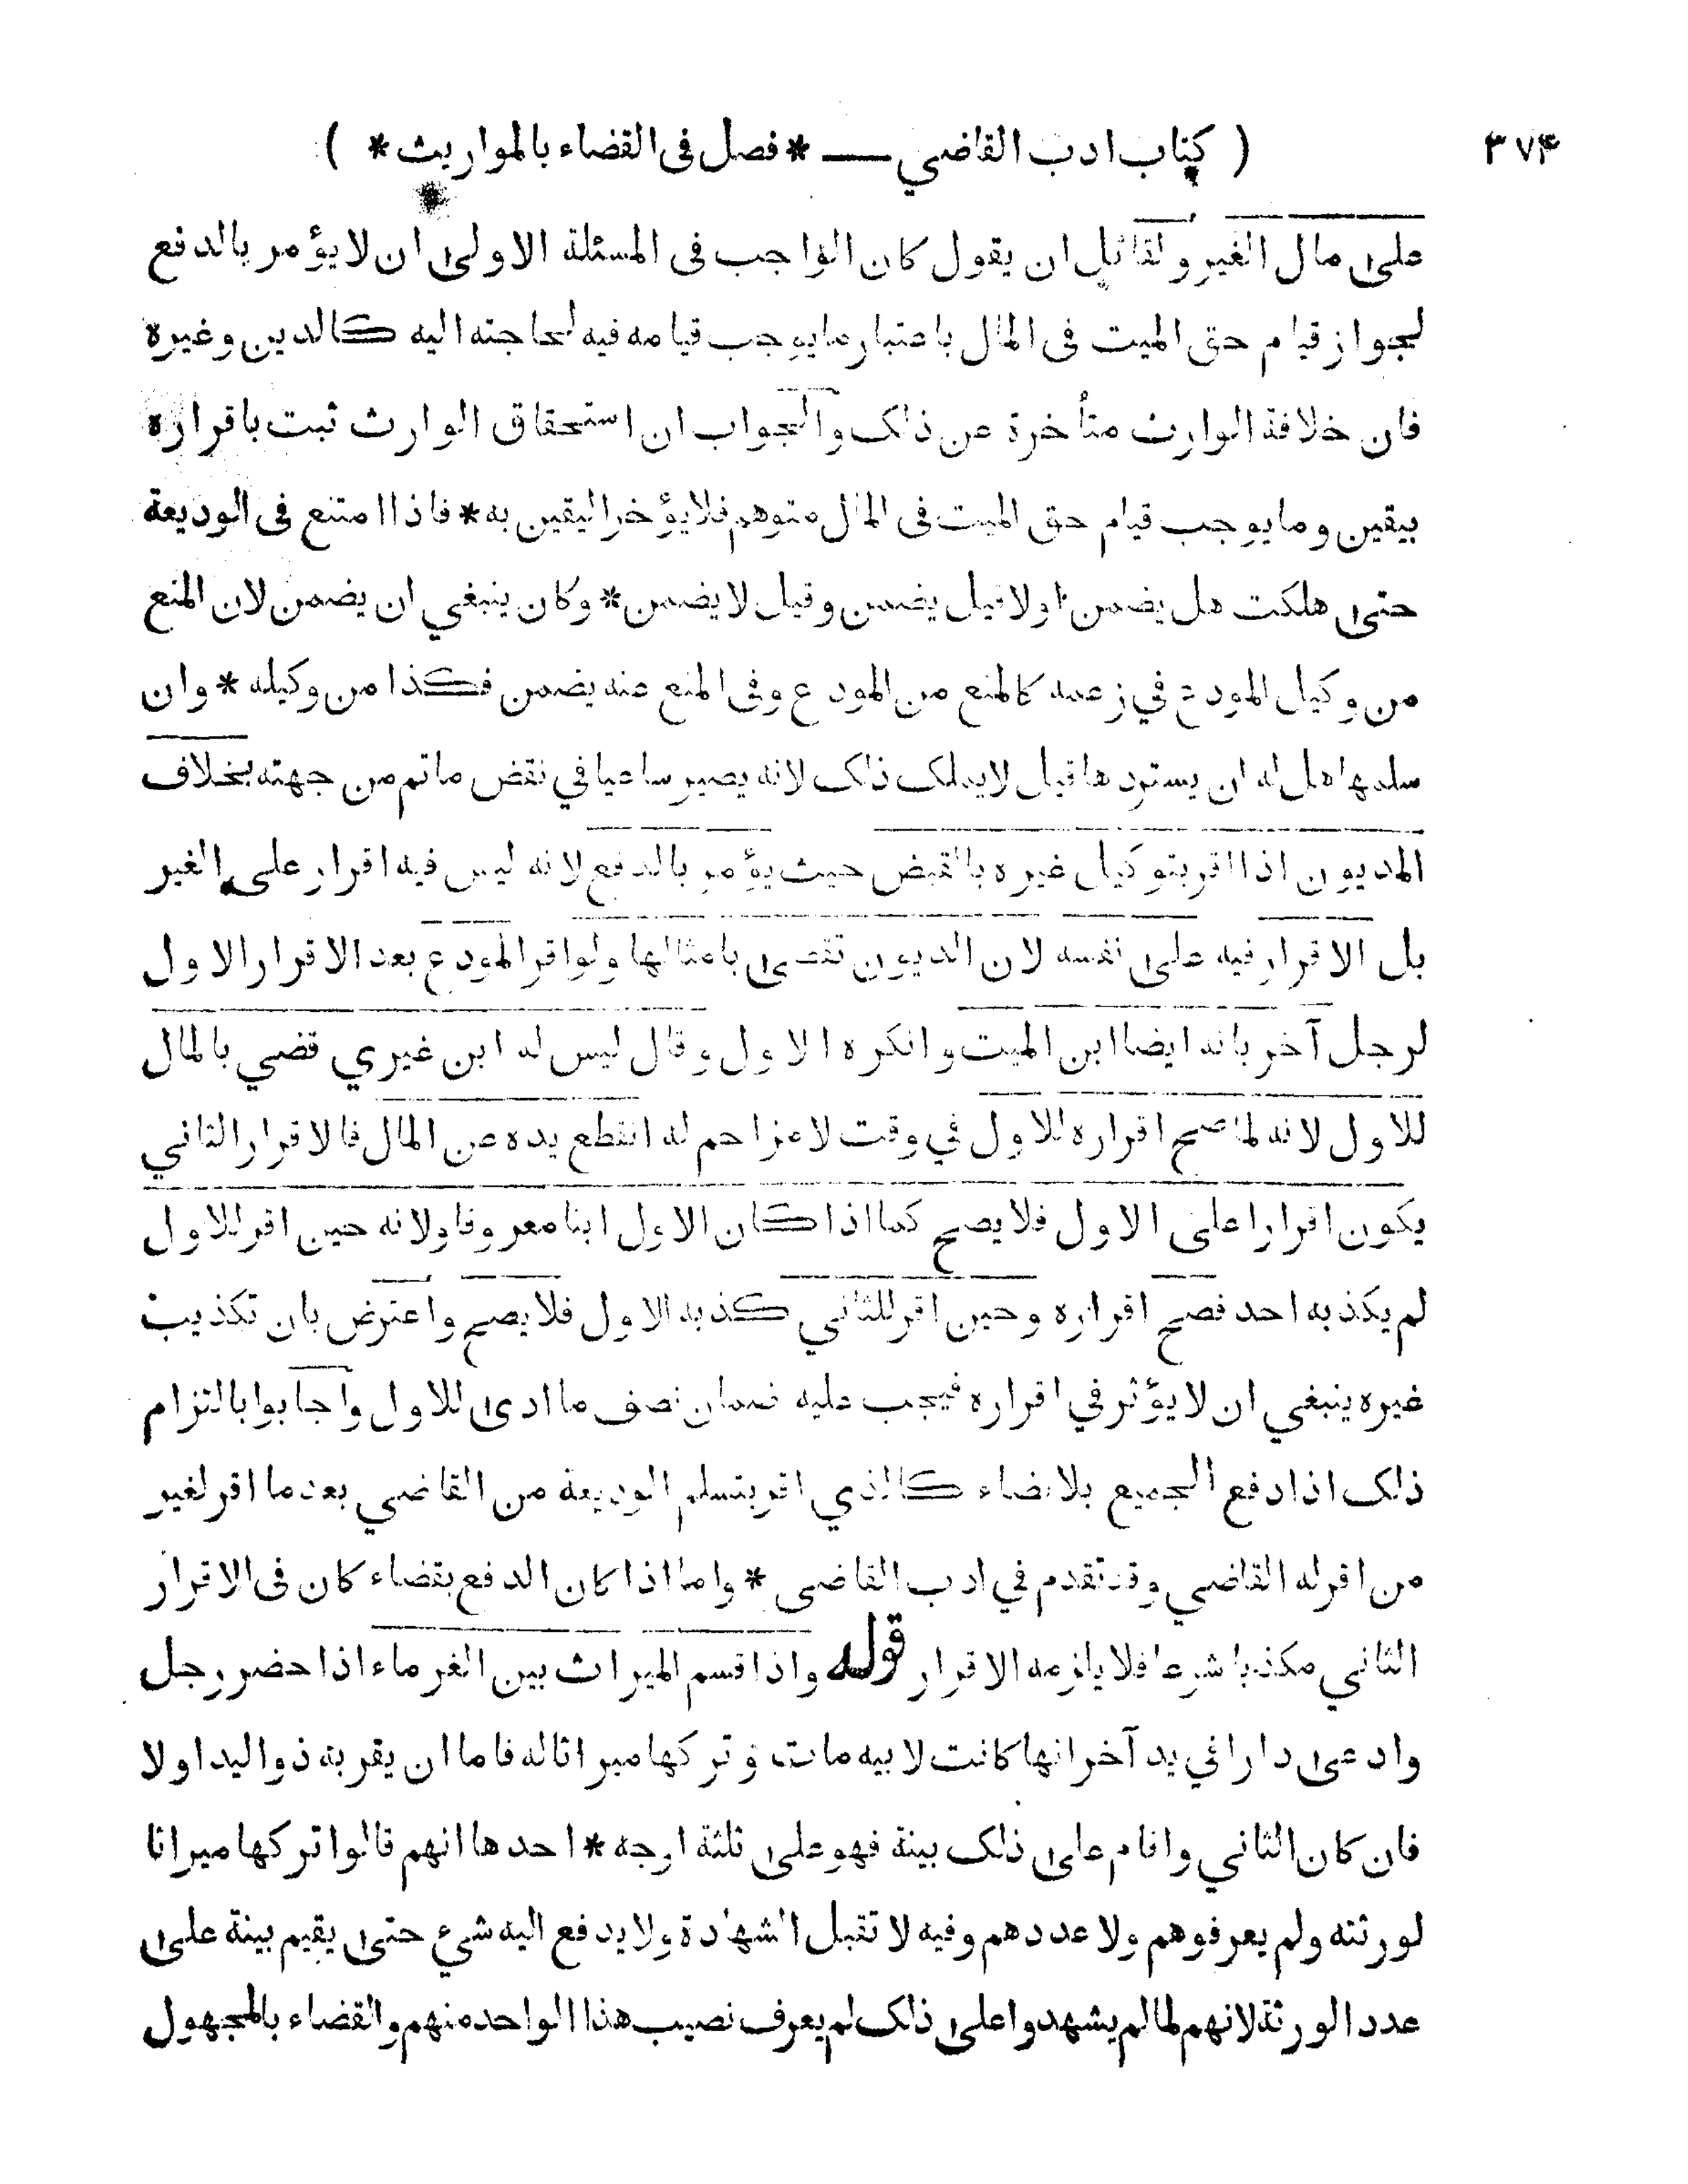 ٣٧٤ ( كتاب ادب القاضي — * فصل فى القضاء بالمواريث * )
على مال الغير ولقائل ان يقول كان الواجب فى المسئلة الاولى ان لا يؤمر بالدفع
لجواز قيام حق الميت فى المال باعتبار ما يوجب قيامه فيه لحاجته اليه كالدين وغيره
فان خلافة الوارث متأخرة عن ذلك والجواب ان استحقاق الوارث ثبت باقراره
بيقين وما يوجب قيام حق الميت فى المال متوهم فلا يؤخر اليقين به * فاذا امتنع فى الوديعة
حتى هلكت هل يضمن اولا قيل يضمن وقيل لا يضمن * وكان ينبغي ان يضمن لان المنع
من وكيل المودع في زعمه كالمنع من المودع وفى المنع عنه يضمن فكذا من وكيله * وان
سلمها هل له ان يستردها قيل لا يملك ذلك لانه يصير ساعيا في نقض ما تم من جهته بخلاف
المديون اذا اقر بتوكيل غيره بالقبض حيث يؤمر بالدفع لانه ليس فيه اقرار على الغير
بل الاقرار فيه على نفسه لان الديون تقضى بامثالها ولو اقر المودع بعد الاقرار الاول
لرجل آخر بانه ايضا ابن الميت وانكره الاول وقال ليس له ابن غيري قضي بالمال
للاول لانه لما صح اقراره للاول في وقت لا مزاحم له انقطع يده عن المال فالاقرار الثاني
يكون اقرارا على الاول فلا يصح كما اذا كان الاول ابنا معروفا ولانه حين اقر للاول
لم يكذبه احد فصح اقراره وحين اقر للثاني كذبه الاول فلا يصح واعترض بان تكذيب
غيره ينبغي ان لا يؤثر في اقراره فيجب عليه ضمان نصف ما ادى للاول واجابوا بالتزام
ذلك اذا دفع الجميع بلا قضاء كالذي اقر بتسلم الوديعة من القاضي بعد ما اقر لغير
من اقر له القاضي وقد تقدم في ادب القاضى * واما اذا كان الدفع بقضاء كان فى الاقرار
الثاني مكذبا شرعا فلا يلزمه الاقرار قوله واذا قسم الميراث بين الغرماء اذا حضر رجل
وادعى دارا في يد آخر انها كانت لابيه مات وتركها ميراثا له فاما ان يقر به ذو اليد اولا
فان كان الثاني واقام على ذلك بينة فهو على ثلثة اوجه * احدها انهم قالوا تركها ميراثا
لورثته ولم يعرفوهم ولا عددهم وفيه لا تقبل الشهادة ولا يدفع اليه شيء حتى يقيم بينة على
عدد الورثة لانهم لما لم يشهدوا على ذلك لم يعرف نصيب هذا الواحد منهم والقضاء بالمجهول